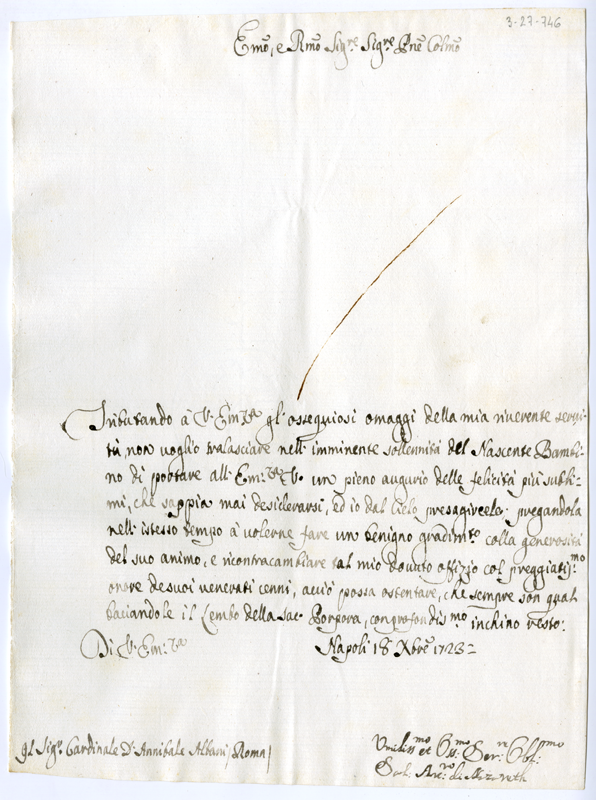 3-27-746
Emo, e Rmo Sigre Sigre Pne Colmo
Tributando à V. Emza gl'ossequiosi omaggi della mia riverente servi-
tù non voglio tralasciare nell'imminente sollennità del Nascente Bambi-
no di portare all'Emza V. un pieno augurio delle felicità più subli-
mi, che sappia mai desiderarsi, ed io dal Cielo presagircele: pregandola
nell'istesso tempo à volerne fare un benigno gradimto colla generosità
del suo animo, e ricontracambiare tal mio dovuto offizio col preggiatismo
onore de suoi venerati cenni, acciò possa ostentare, che sempre son qual
baciandole il Lembo della Sac. Porpora, con profondismo inchino resto:
Di V. Emza Napoli 18 Xbre 1723=
Sigr Cardinale D. Annibale Albani/Roma/
Umilissmo et Serre
di Nazareth